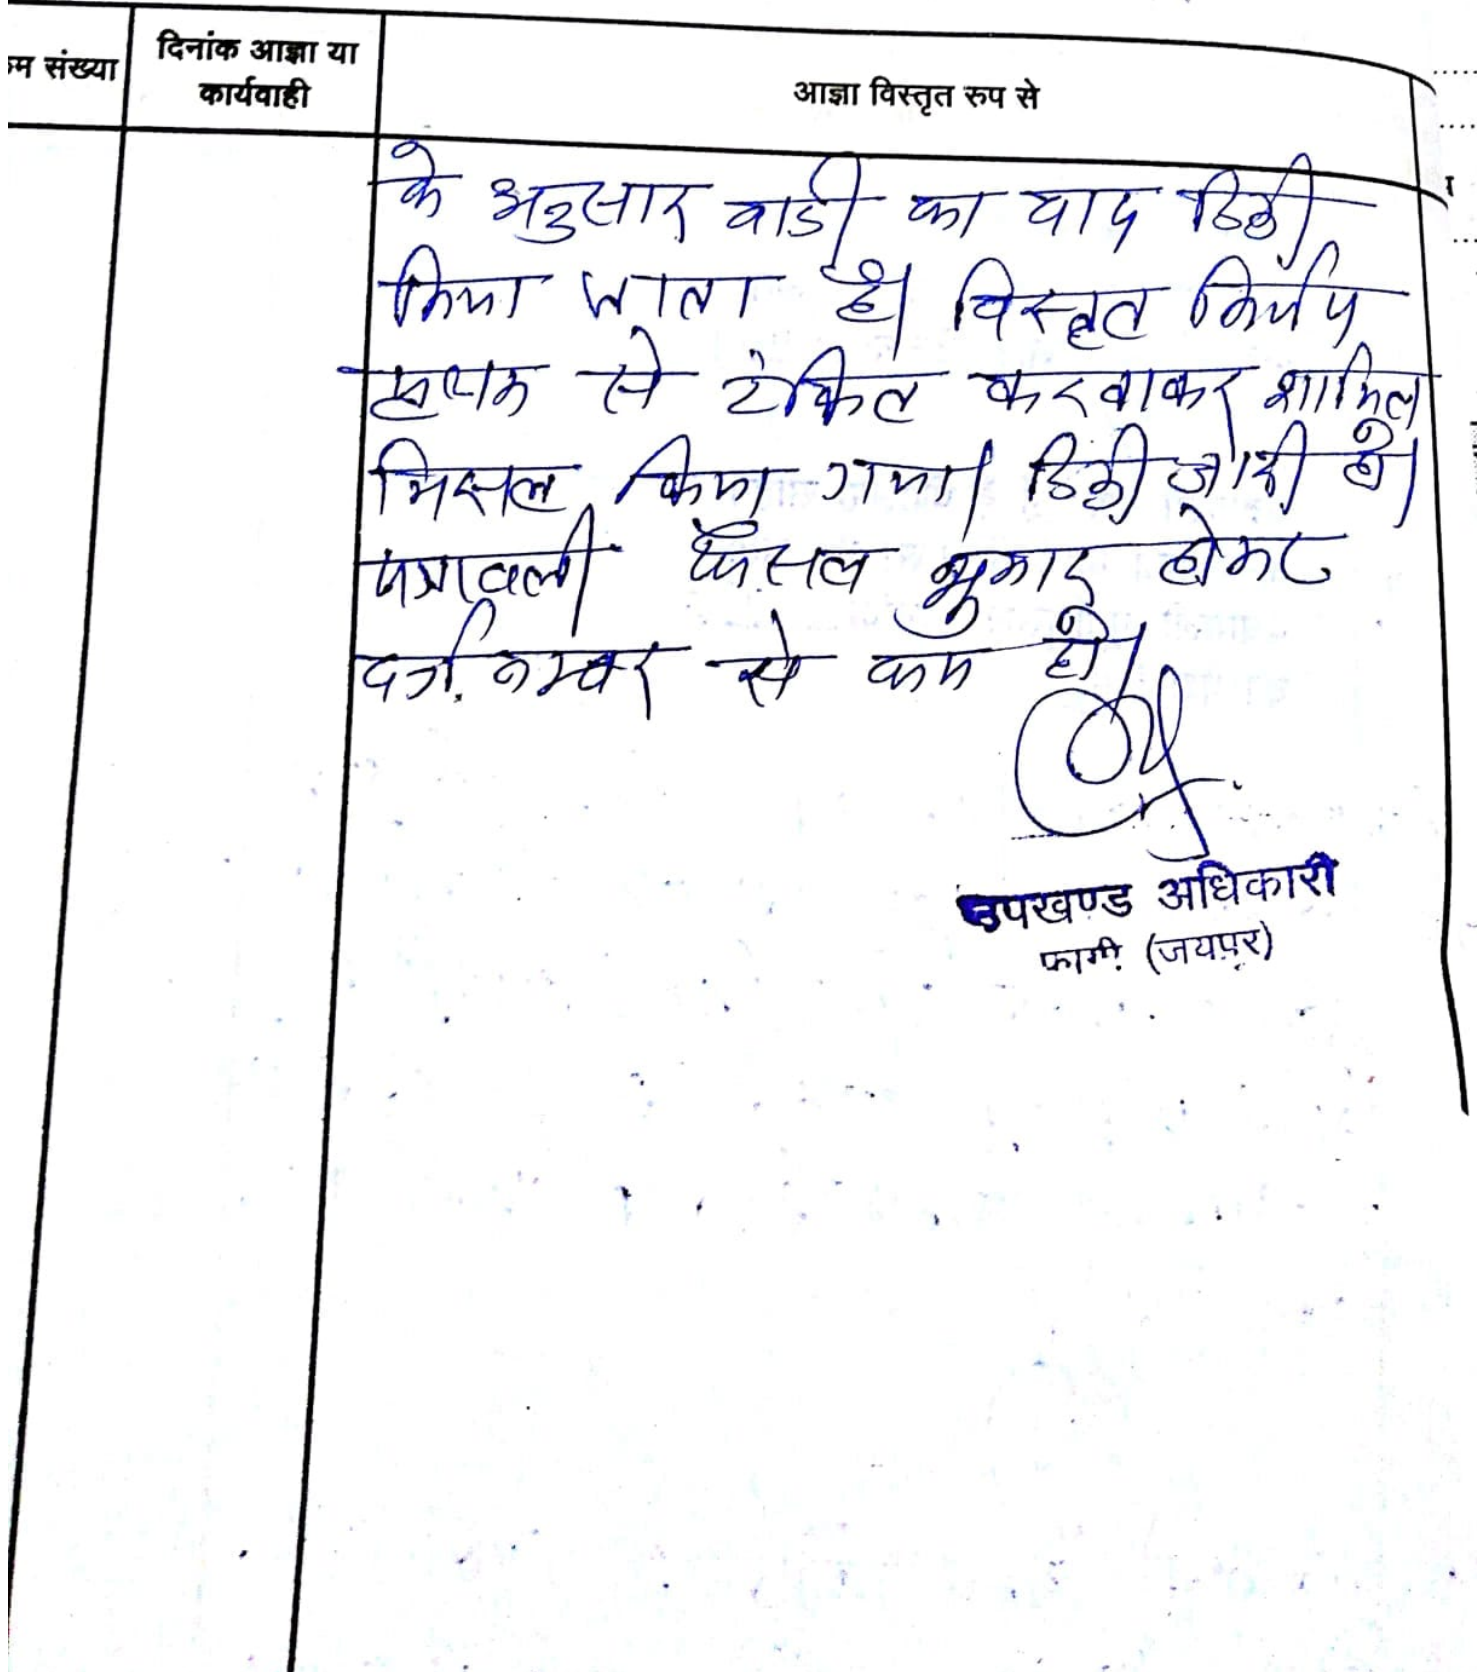 म संख्या
दिनांक आज्ञा या
कार्यवाही
आज्ञा विस्तृत रुप से
के अनुसार वादी का वाद डिक्री
किया जाता है। विस्तृत निर्णय
पृथक से टंकित करवाकर शामिल
मिसल किया गया। डिक्री जारी हो।
पत्रावली फैसल शुमार होकर
दर्ज नम्बर से कम हो।
उपखण्ड अधिकारी
फागी (जयपुर)